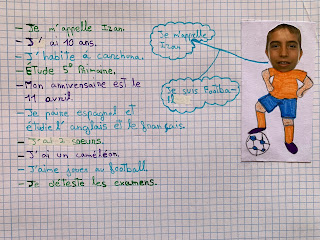 - Je m'appelle Izan.
- J'ai 10 ans.
- J'habite à canchona.
- Étude 5º Primaire.
- Mon anniversaire est le
11 avril.
- Je parle espagnol et
étudie l'anglais et le français.
- J'ai 2 coeurs.
- J'ai un caméléon.
- J'aime joues au football
- Je déteste les examens.
Je m'appelle
Izan
Je suis Footba-
ll